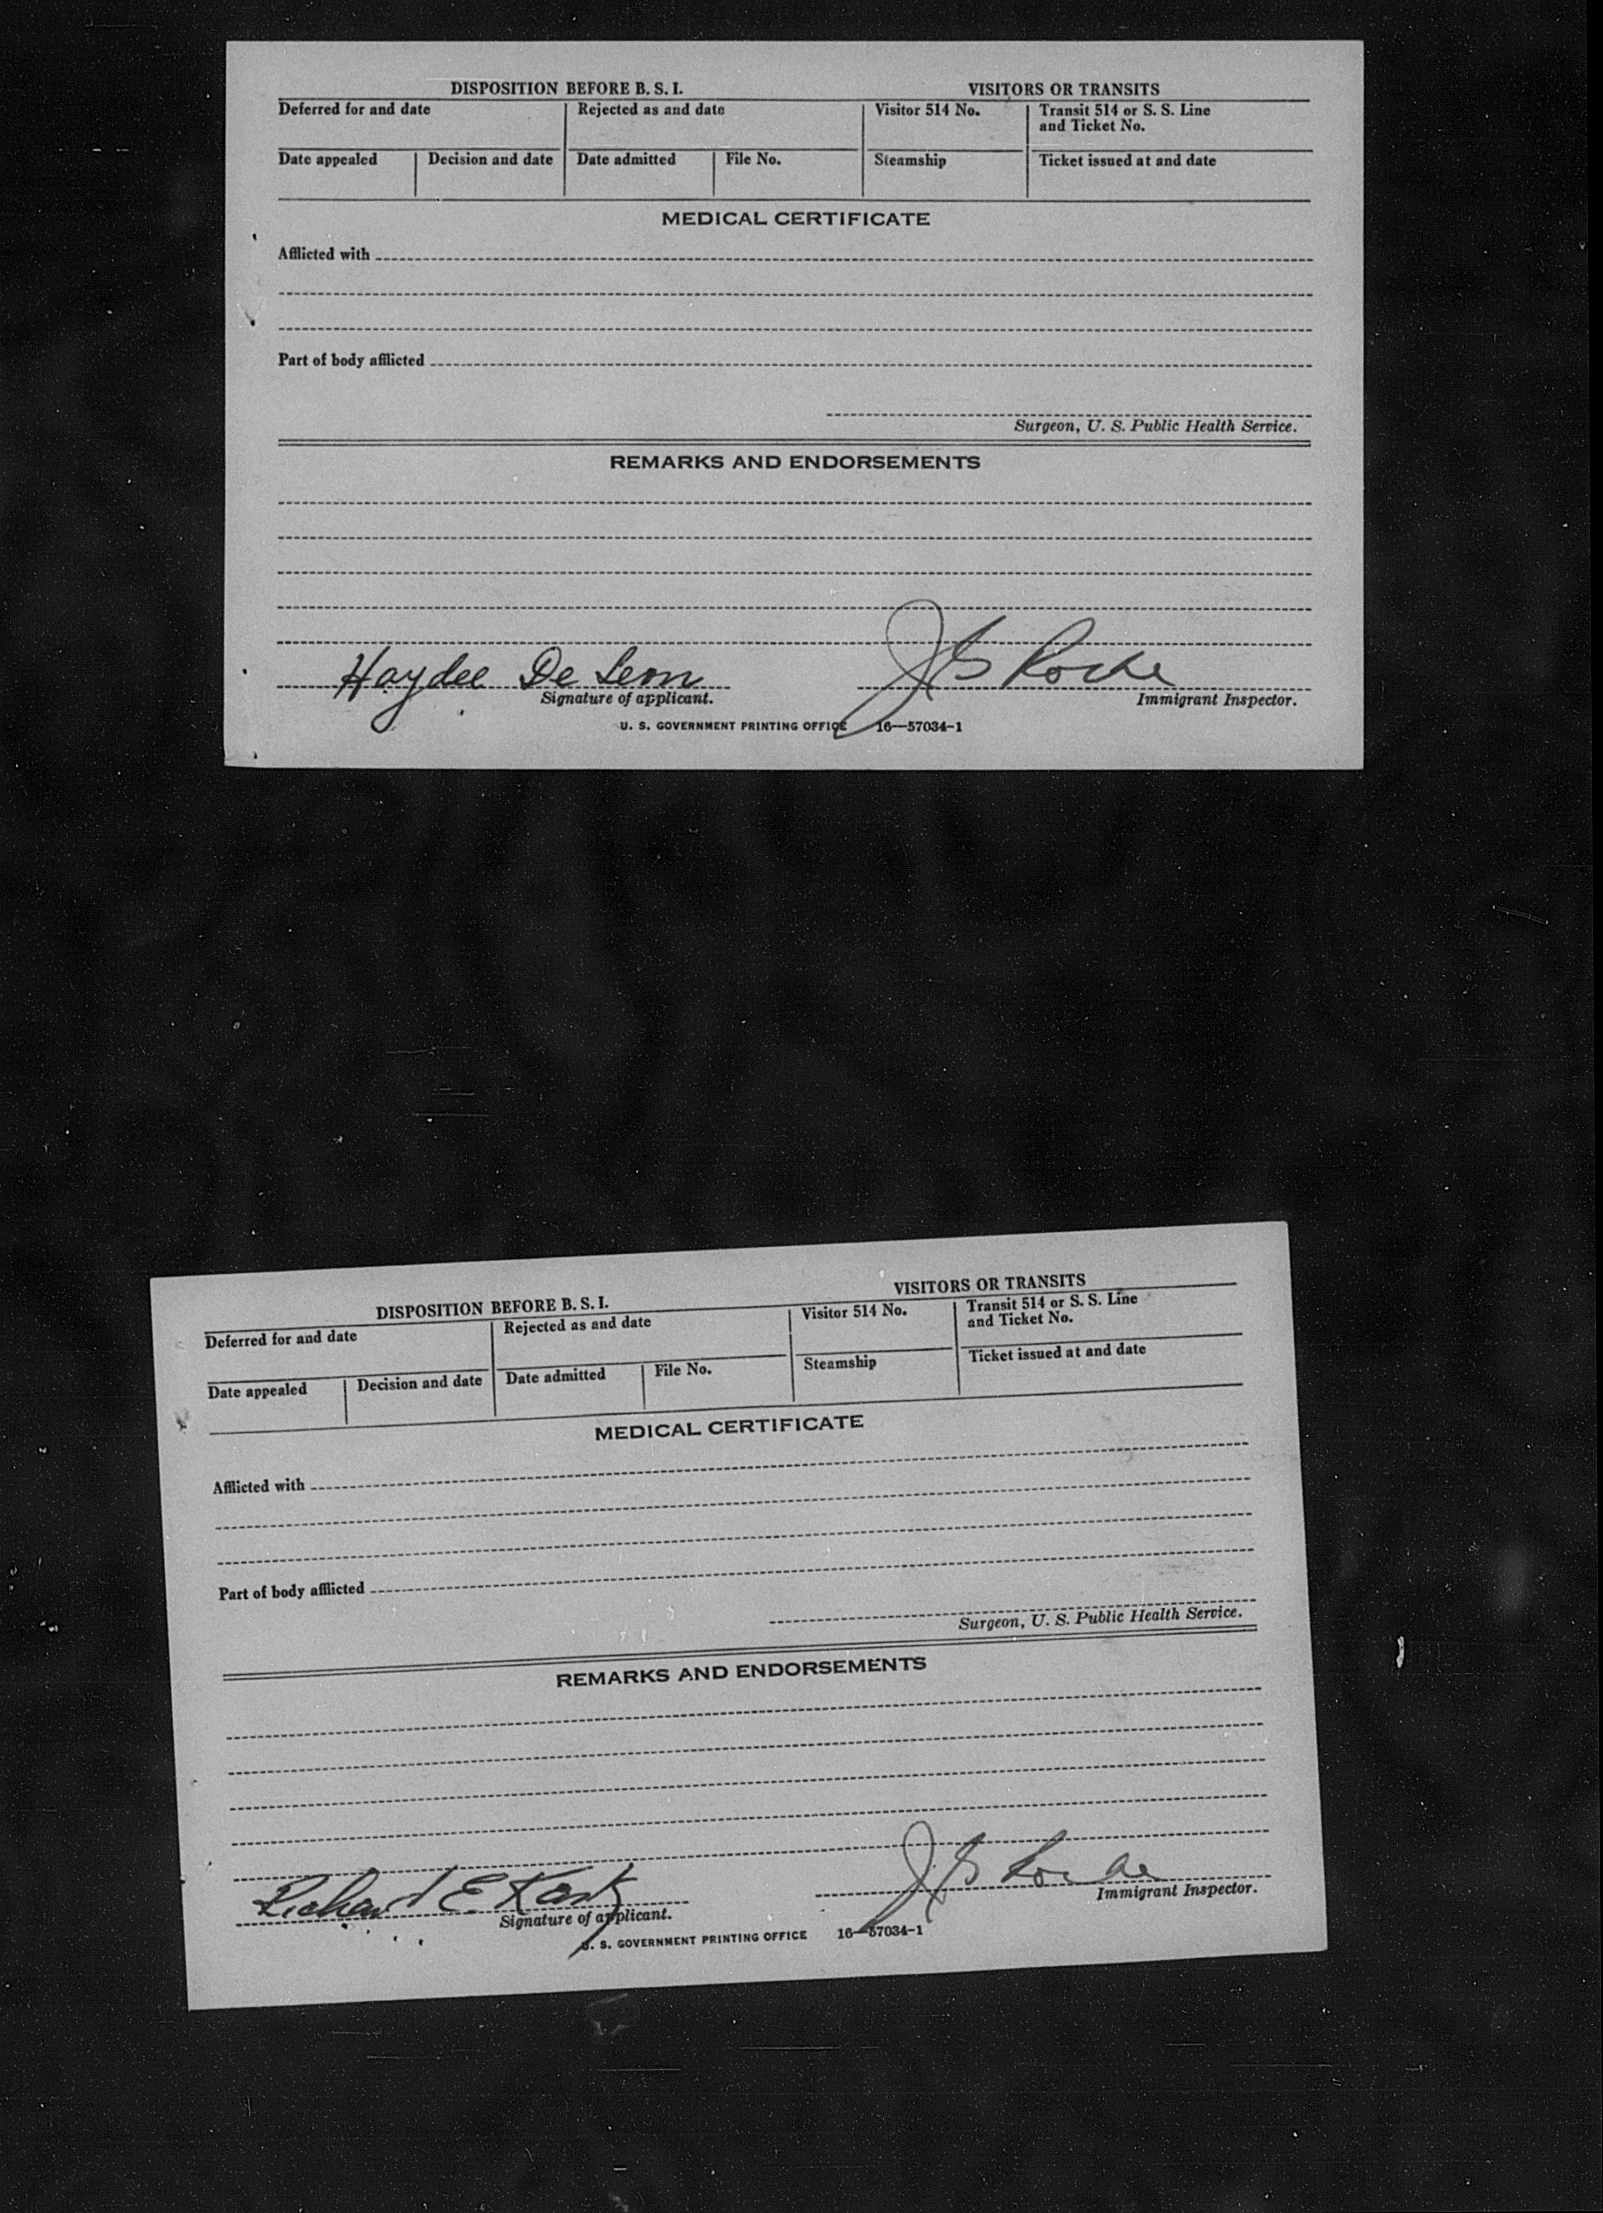 DISPOSITION BEFORE B. S. I. VISITORS OR TRANSITS
Deferred for and date Rejected as and date Visitor 514 No. Transit 514 or S. S. Line
and Ticket No.
Date appealed Decision and date Date admitted File No. Steamship Ticket issued at and date
MEDICAL CERTIFICATE
Afflicted with
Part of body afflicted
Surgeon, U. S. Public Health Service.
REMARKS AND ENDORSEMENTS
Haydee De Leon J S Roche
Signature of applicant. Immigrant Inspector.
U. S. GOVERNMENT PRINTING OFFICE 16—57034-1
DISPOSITION BEFORE B. S. I. VISITORS OR TRANSITS
Deferred for and date Rejected as and date Visitor 514 No. Transit 514 or S. S. Line
and Ticket No.
Date appealed Decision and date Date admitted File No. Steamship Ticket issued at and date
MEDICAL CERTIFICATE
Afflicted with
Part of body afflicted
Surgeon, U. S. Public Health Service.
REMARKS AND ENDORSEMENTS
Richard E. J S Roche
Signature of applicant. Immigrant Inspector.
U. S. GOVERNMENT PRINTING OFFICE 16—57034-1